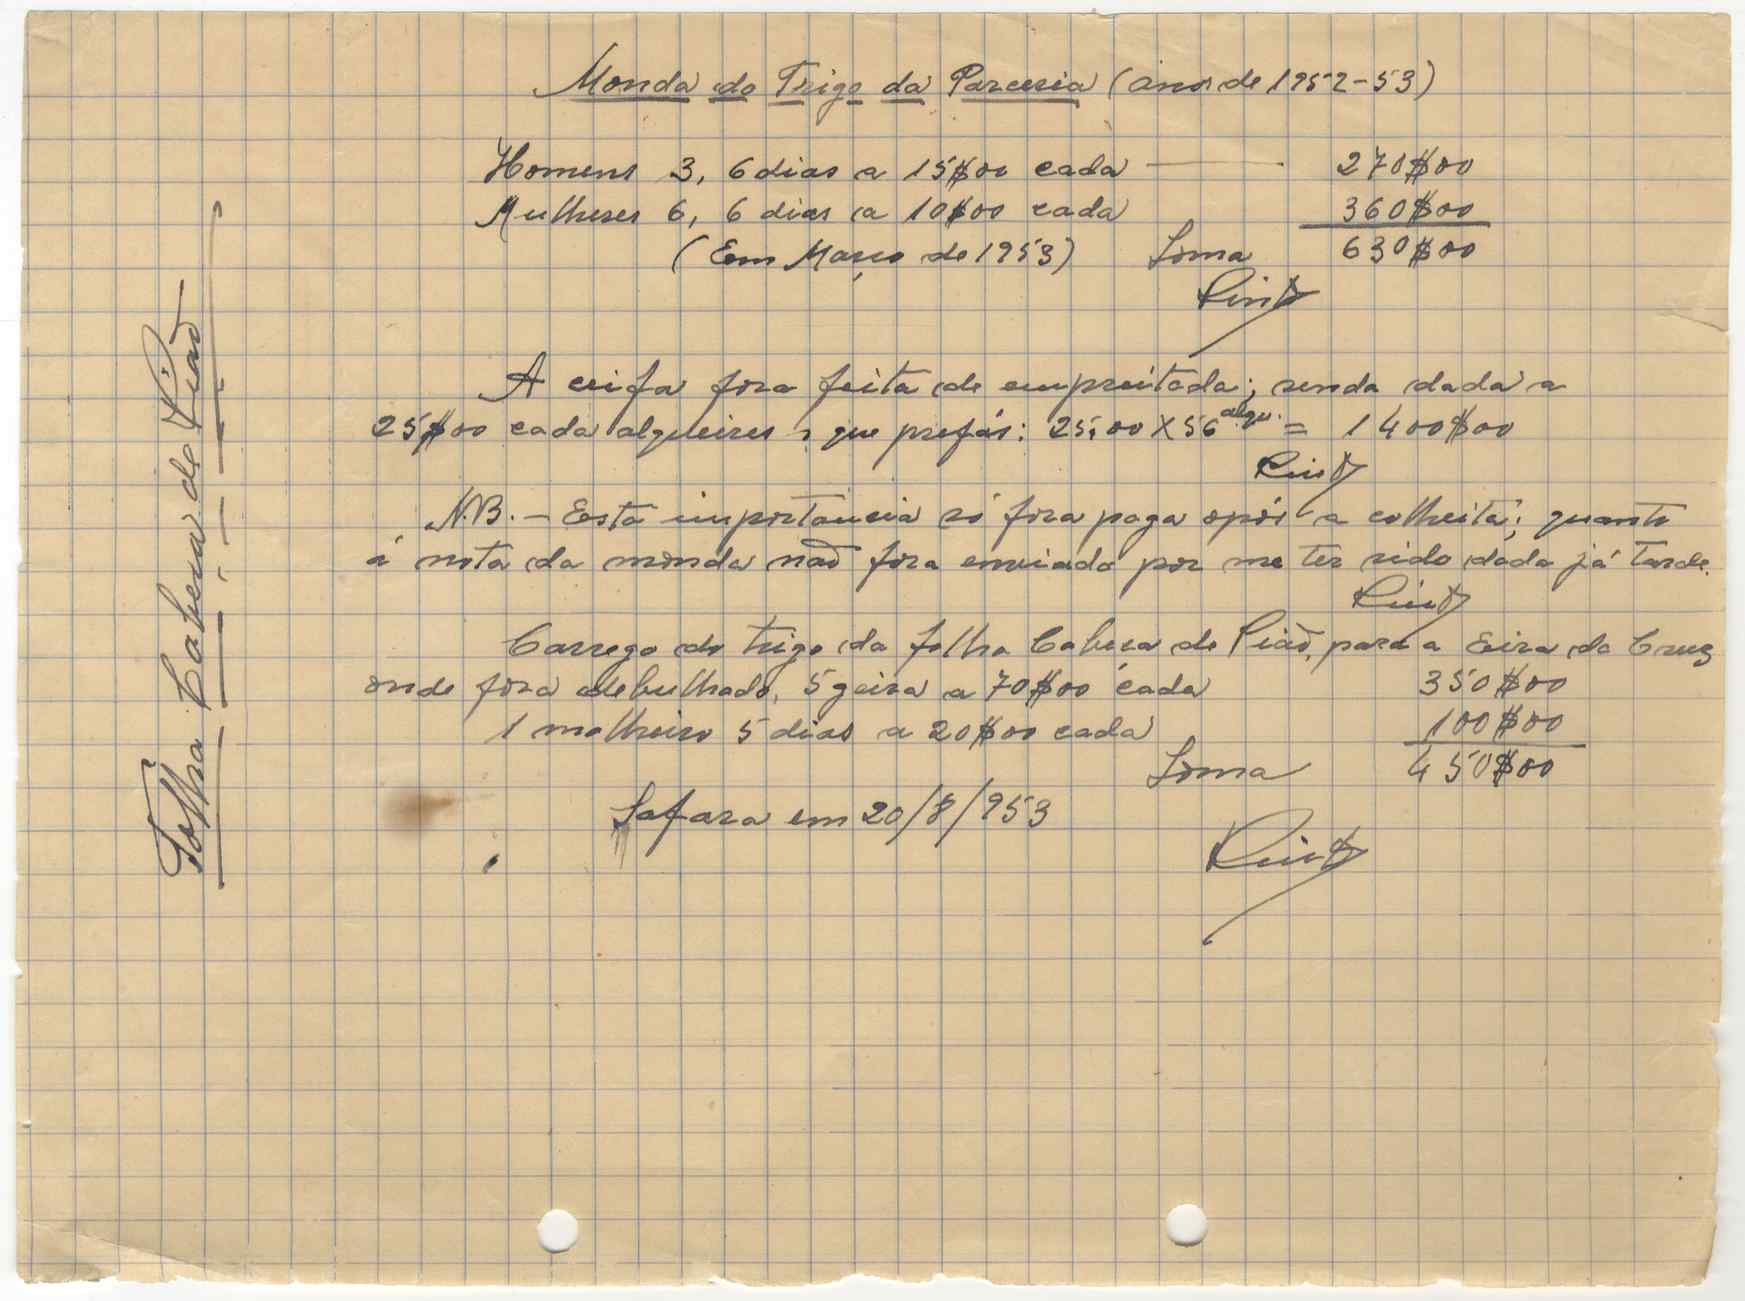 Monda do Trigo da Parceria (ano de 1952-53)
Homens 3, 6 dias a 15$00 cada — 270$00
Mulheres 6, 6 dias a 10$00 cada 360$00
(Em Março de 1953) Soma 630$00
A ceifa fora feita de empreitada; sendo dada a
25$00 cada alqueires, que prefás: 25,00 X 56 alqu. = 1400$00
N.B. - Esta importancia só fora paga após a colheita; quanto
á nota da monda não fora enviada por me ter sido dada já tarde.
Carrego do trigo da folha Cabeça de Pião, para a Eira da Cruz
onde fora debulhado, 5 geira a 70$00 cada 350$00
1 molheiro 5 dias a 20$00 cada 100$00
Soma 450$00
Safara em 20/8/953
Folha Cabeça de Pião